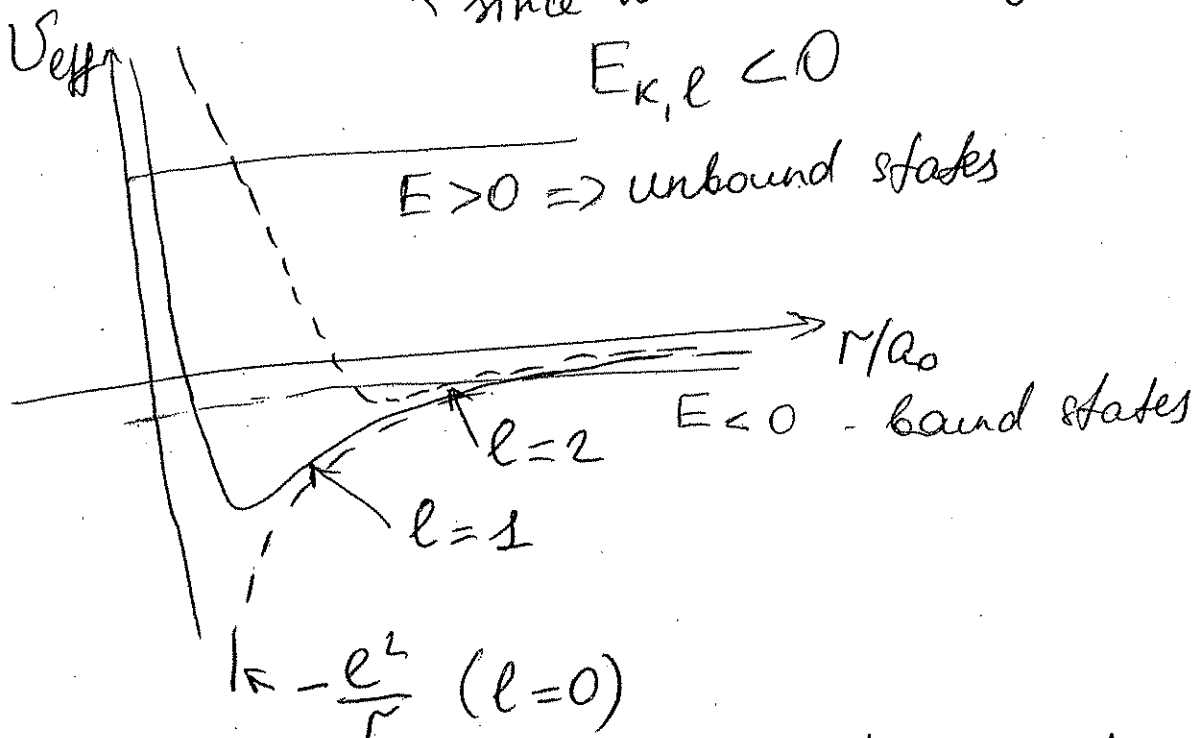 since
V_eff
E_{k,l} < 0
E > 0 => unbound states
r/a₀
E < 0 - baund states
l = 2
l = 1
- e²/r (l = 0)